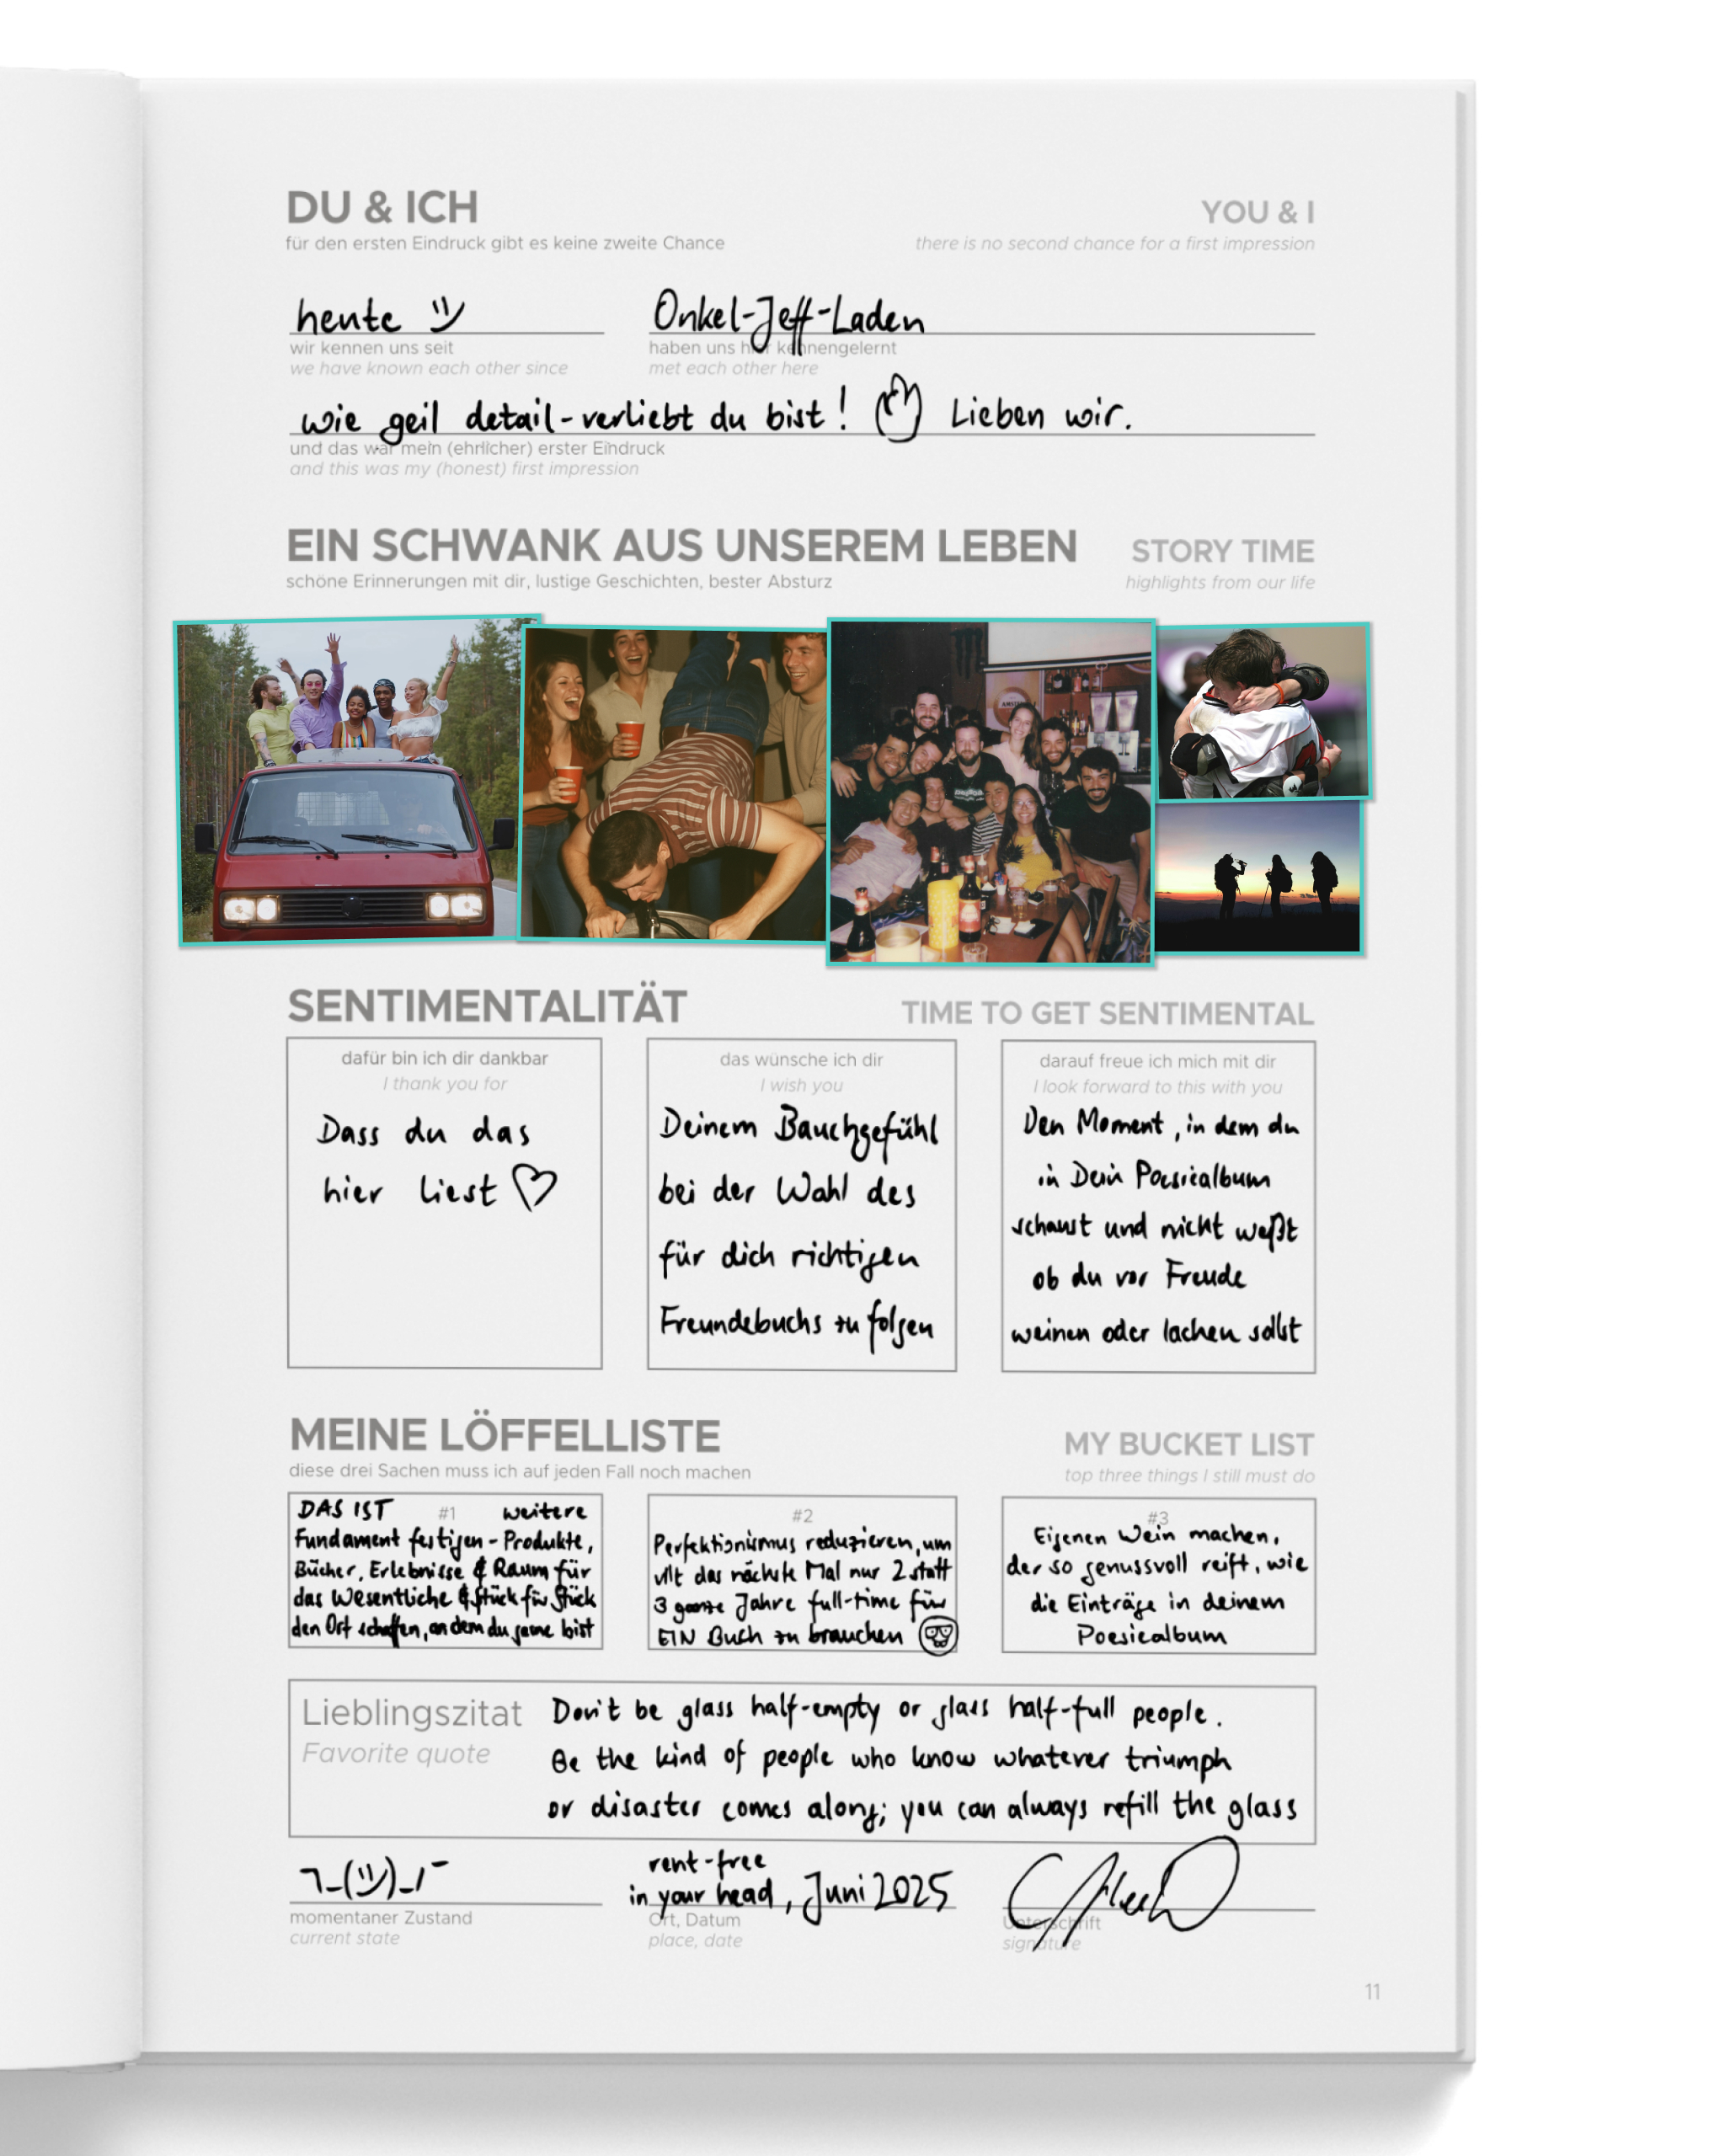 DU & ICH
YOU & I
für den ersten Eindruck gibt es keine zweite Chance
there is no second chance for a first impression
heute
Onkel-Jeff-Laden
wir kennen uns seit
haben uns hier kennengelernt
we have known each other since
met each other here
wie geil detail-verliebt du bist! Lieben wir.
und das war mein (ehrlicher) erster Eindruck
and this was my (honest) first impression
EIN SCHWANK AUS UNSEREM LEBEN
STORY TIME
schöne Erinnerungen mit dir, lustige Geschichten, bester Absturz
highlights from our life
SENTIMENTALITÄT
TIME TO GET SENTIMENTAL
dafür bin ich dir dankbar
I thank you for
Dass du das
hier liest ♡
das wünsche ich dir
I wish you
Deinem Bauchgefühl
bei der Wahl des
für dich richtigen
Freundebuchs zu folgen
darauf freue ich mich mit dir
I look forward to this with you
Den Moment, in dem du
in Dein Poesiealbum
schaust und nicht weißt
ob du vor Freude
weinen oder lachen sollst
MEINE LÖFFELLISTE
MY BUCKET LIST
diese drei Sachen muss ich auf jeden Fall noch machen
top three things I still must do
DAS IST #1 weitere
Fundament festigen - Produkte,
Bücher, Erlebnisse & Raum für
das Wesentliche & Stück für Stück
den Ort schaffen, an dem du gerne bist
#2
Perfektionismus reduzieren, um
vllt das nächste Mal nur 2 statt
3 ganze Jahre full-time für
EIN Buch zu brauchen
#3
Eigenen Wein machen,
der so genussvoll reift, wie
die Einträge in deinem
Poesiealbum
Lieblingszitat
Favorite quote
Don't be glass half-empty or glass half-full people.
Be the kind of people who know whatever triumph
or disaster comes along; you can always refill the glass
¬_(ツ)_/¯
rent-free
in your head, Juni 2025
momentaner Zustand
current state
Ort, Datum
place, date
Unterschrift
signature
11